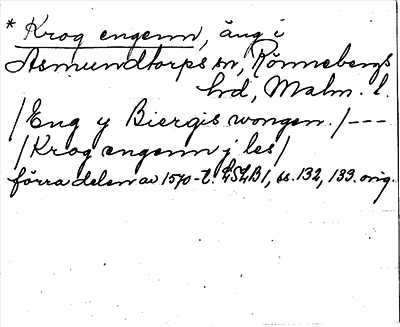 * Krog engenn, äng i
Asmundtorps sn, Rönnebergs
hd, Malm. l.
/Eng y Biergis wongen./---
/Krog engenn j les/
förra delen av 1570-t. LSLB1, ss. 132, 133. orig.